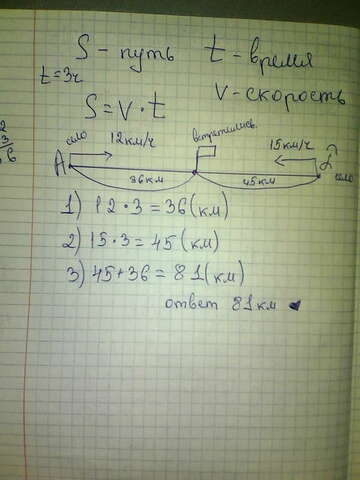 S - путь t - время
t=3ч
S=v·t v-скорость
село 12км/ч встретились 15км/ч
A 36км 45км село
1) 12·3=36(км)
2) 15·3=45(км)
3) 45+36=81(км)
ответ 81км